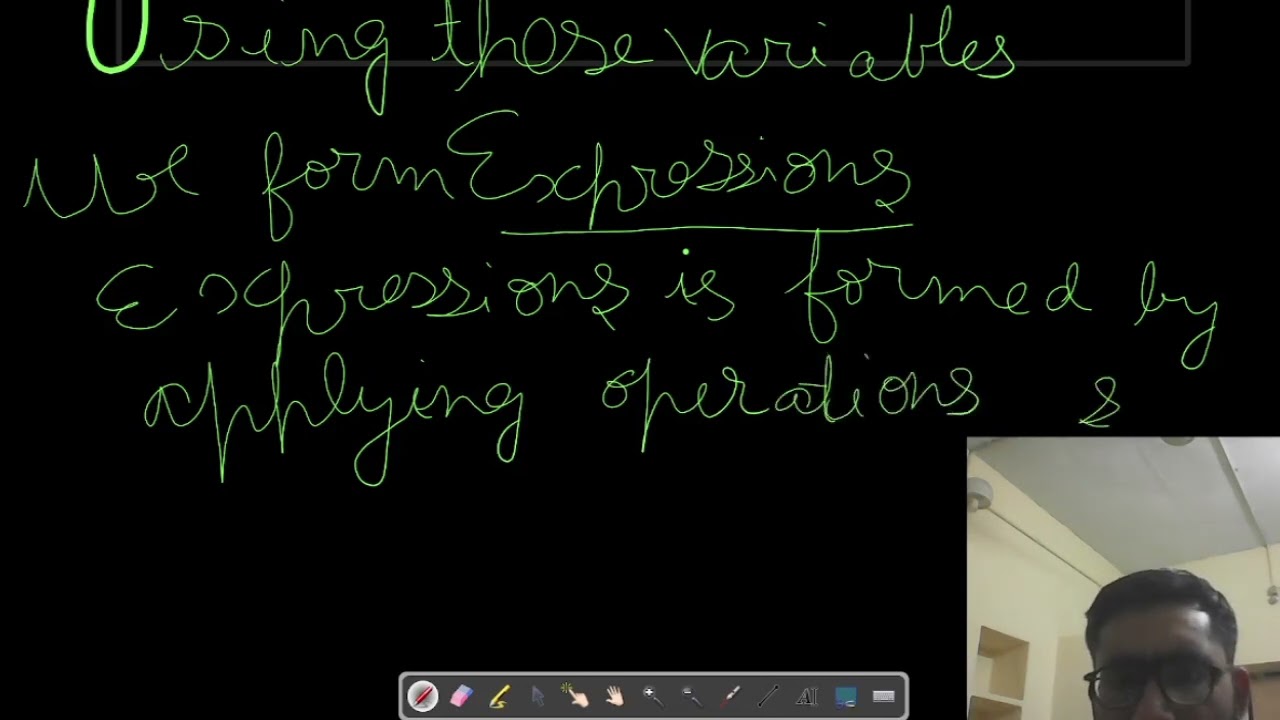 Using those variables
We form Expressions
Expressions is formed by
applying operations &
AI